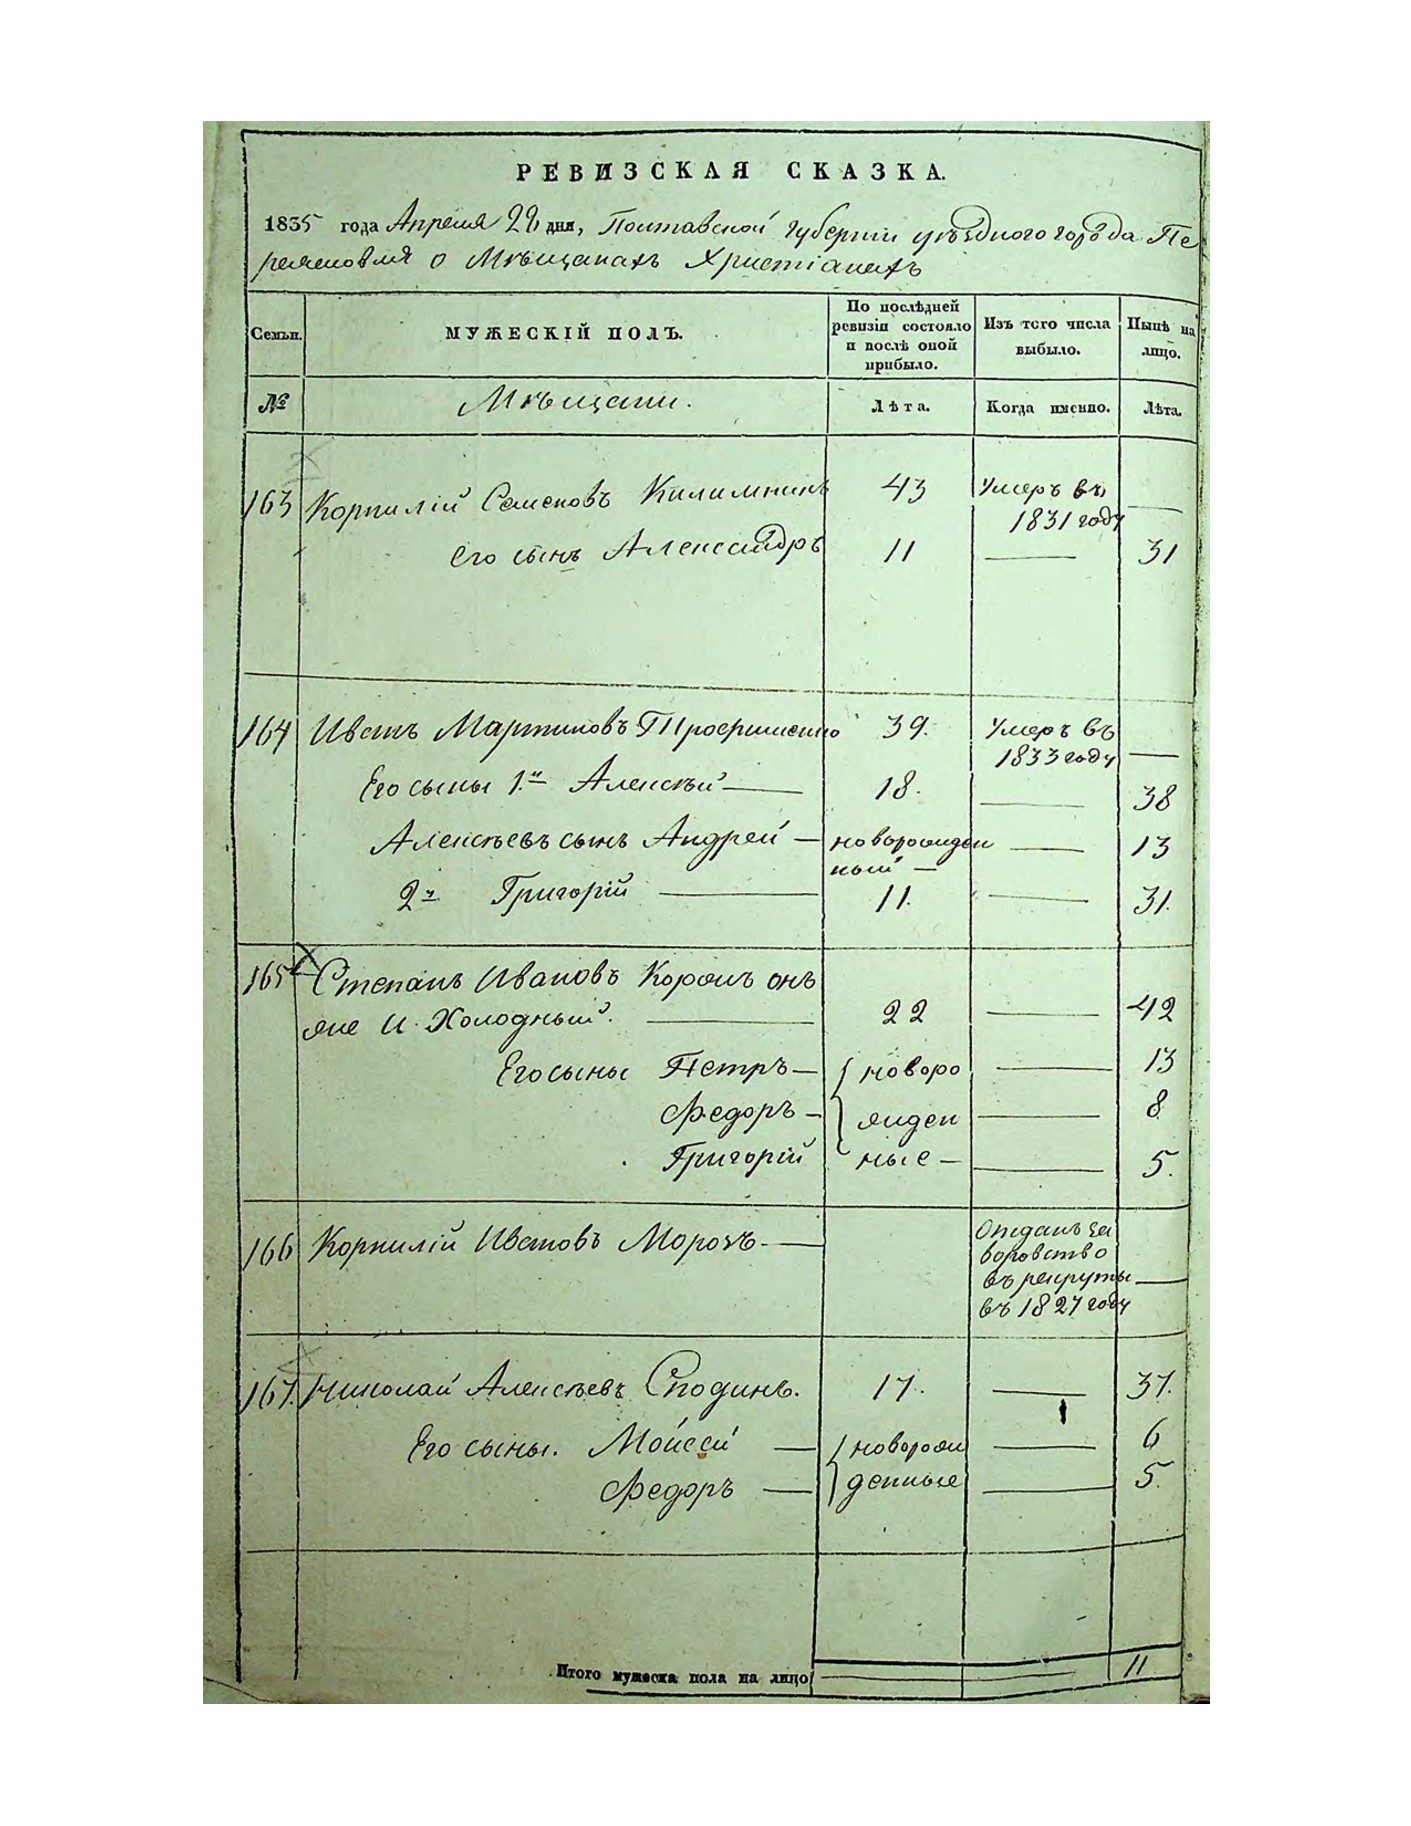 РЕВИЗСКАЯ СКАЗКА.
1835 года Апреля 22 дня, Полтавской губернии уѣздного города Пе
реяславля о Мѣщанахъ Христіанахъ
Семьи. МУЖЕСКІЙ ПОЛЪ. По послѣдней ревизіи состояло и послѣ оной прибыло. Изъ того числа выбыло. Нынѣ на лицо.
№ Мѣщани. Лѣта. Когда именно. Лѣта.
163 Корнилій Семеновъ Килимникъ 43 Умеръ въ 1831 году —
его сынъ Александръ 11 — 31
164 Иванъ Мартиновъ 39. Умеръ въ 1833 году —
Его сыны 1й Алексѣй — 18. — 38
Алексѣевъ сынъ Андрей — новорожден ный — — 13
2й Григорій — 11. — 31.
165 Степанъ Ивановъ онъ
же и Холодный. — 22 — 42
Его сыны Петръ — новоро — 13
Федоръ — жден — 8
Григорій ные — — 5.
166 Корнилій Ивановъ Морозъ — Отданъ за воровство въ рекруты въ 1827 году —
167. Николай Алексѣевъ Сподинъ. 17. — 37.
Его сыны. Моисей — новорож — 6
Федоръ — денные — 5.
Итого мужеска пола на лицо — 11